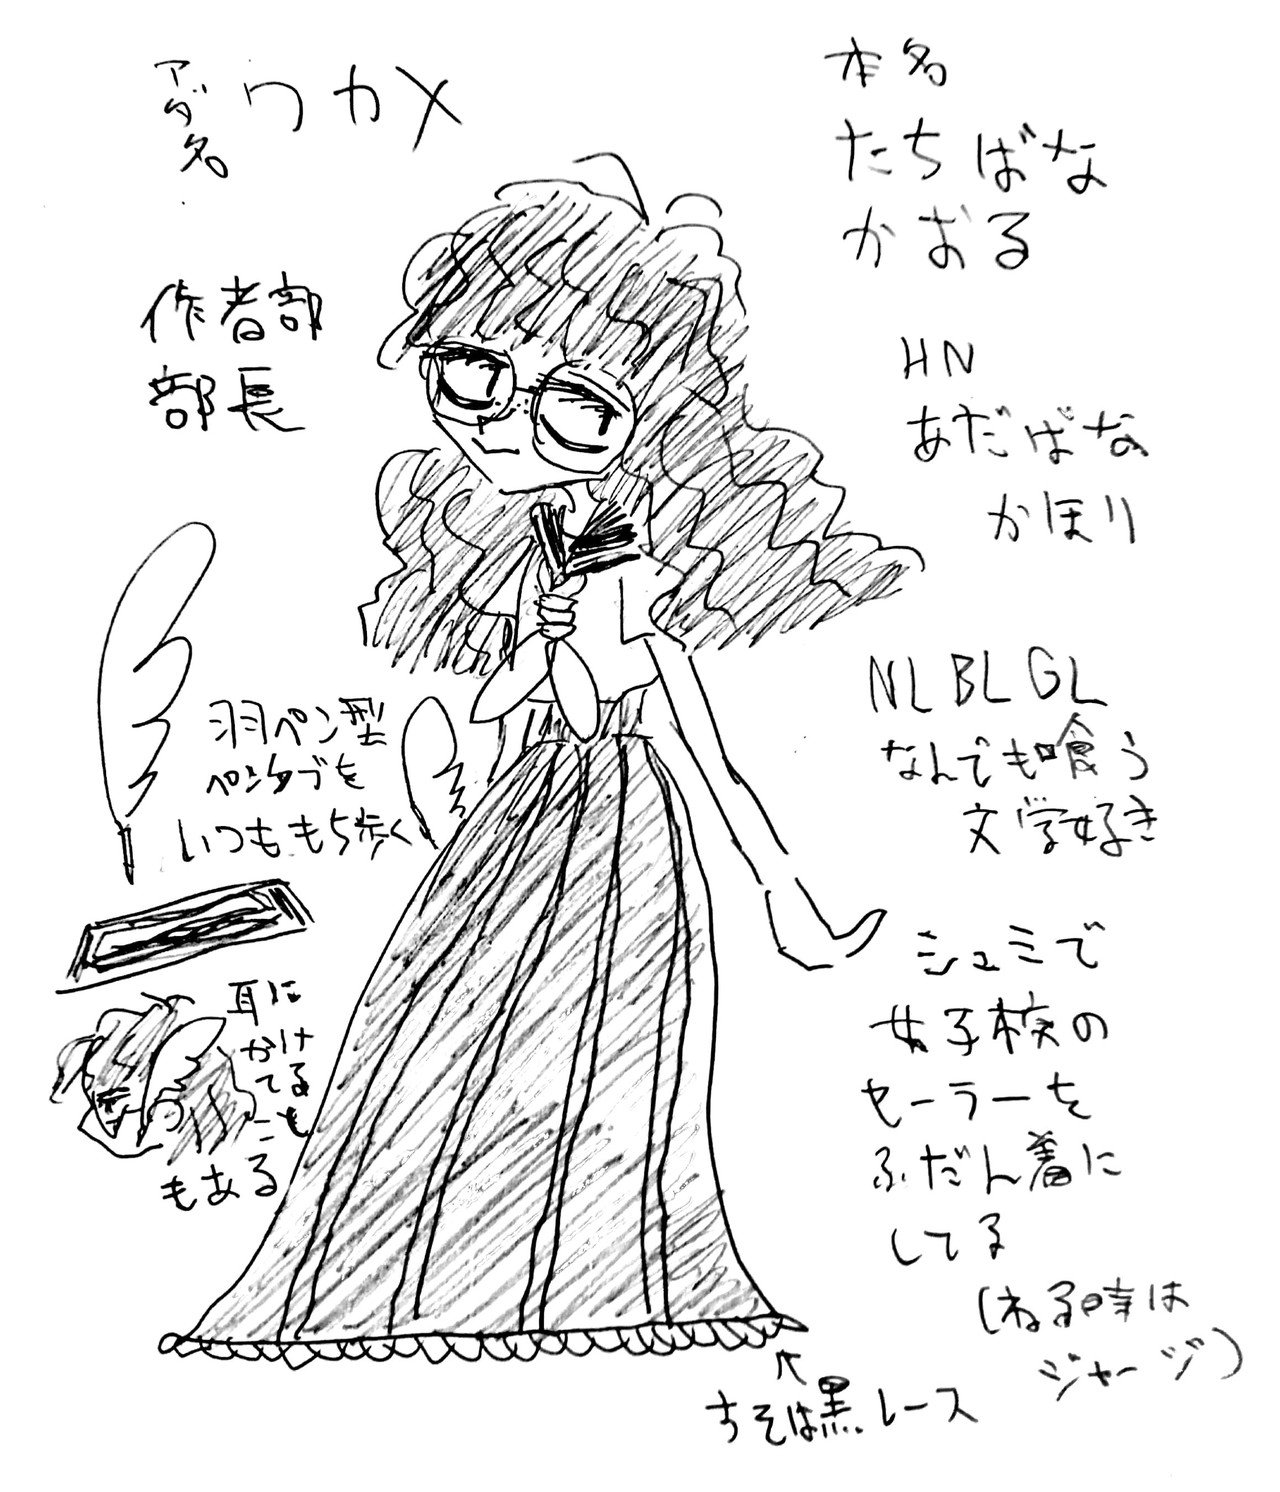 アダ名
ワカメ
作者部
部長
本名
たちばな
かおる
HN
あだばな
かほり
NL BL GL
なんでも喰う
文学好き
シュミで
女子校の
セーラーを
ふだん着に
してる
(ねる時は
ジャージ)
羽ペン型
ペンタブを
いつももち歩く
耳に
かけ
てる
ことも
もある
↑
すそは黒レース